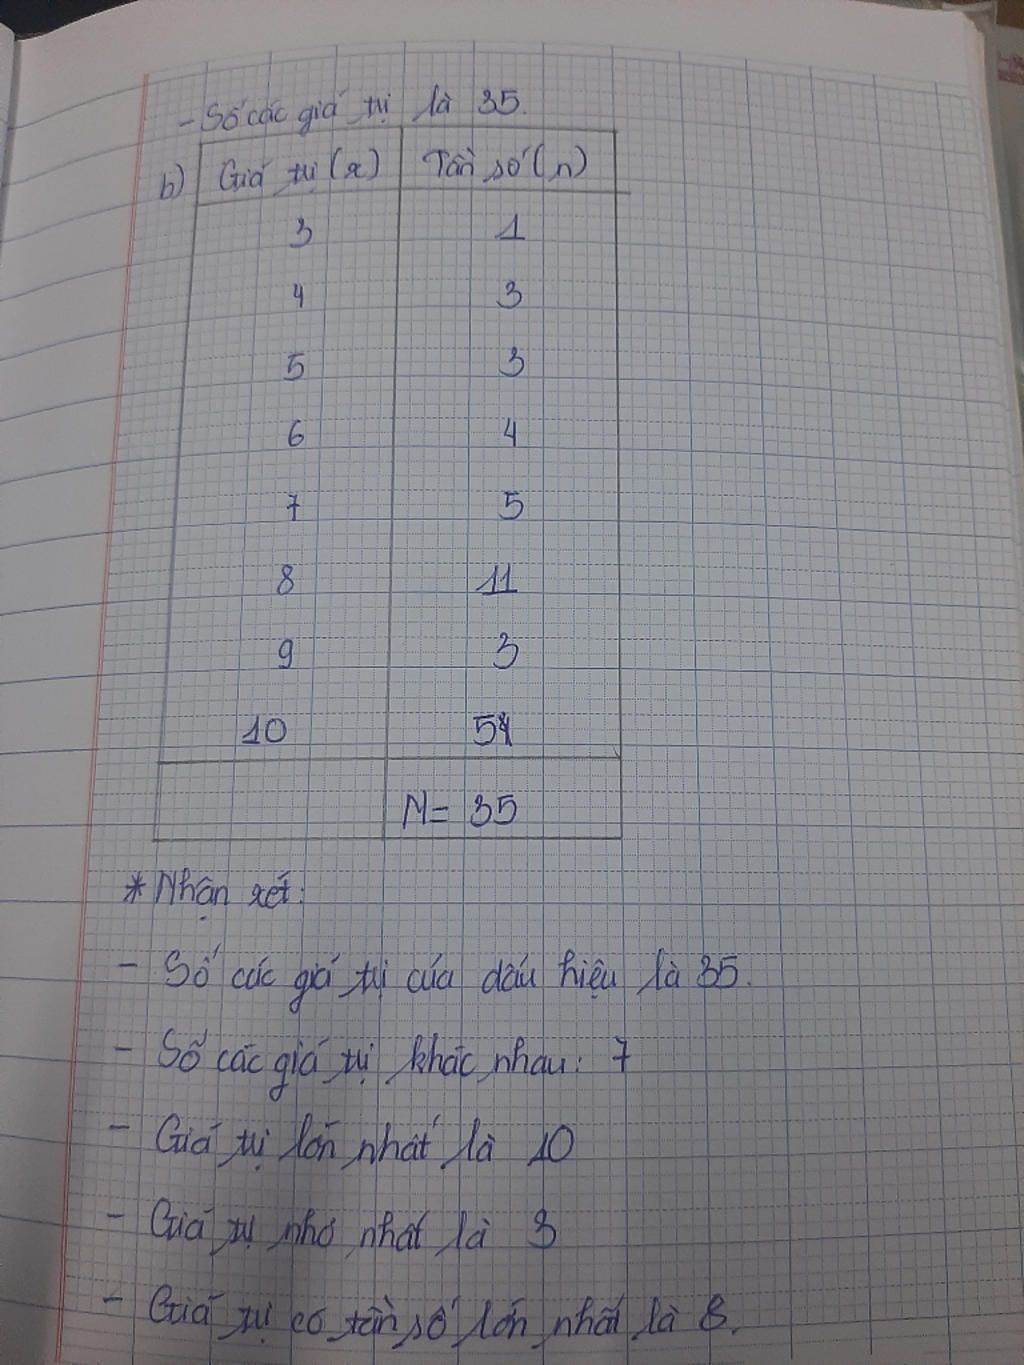 - Số các giá trị là 35.
b) Giá trị (x) Tần số (n)
3 1
4 3
5 3
6 4
7 5
8 11
9 3
10 5
N = 35
* Nhận xét:
- Số các giá trị của dấu hiệu là 35.
- Số các giá trị khác nhau: 7
- Giá trị lớn nhất là 10
- Giá trị nhỏ nhất là 3
- Giá trị có tần số lớn nhất là 8.